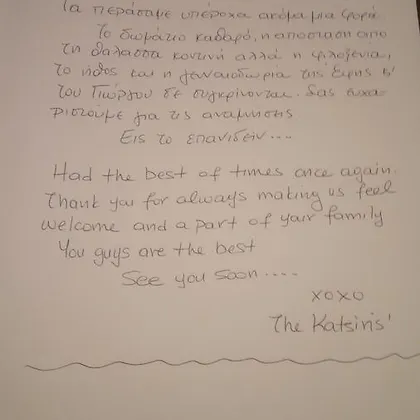 Τα περάσαμε υπέροχα ακόμα μια φορά
Το δωμάτιο καθαρό, η απόσταση απο
τη θαλασσα κοντινή αλλά η φιλοξενία,
το ήθος και η γενναιοδωρία της Έφης &
του Γιώργου δε συγκρίνονται. Σας ευχα-
ριστουμε για τις αναμνησεις
Εις το επανιδείν....
Had the best of times once again.
Thank you for always making us feel
welcome and a part of your family
You guys are the best
See you soon....
xoxo
The Katsiris'